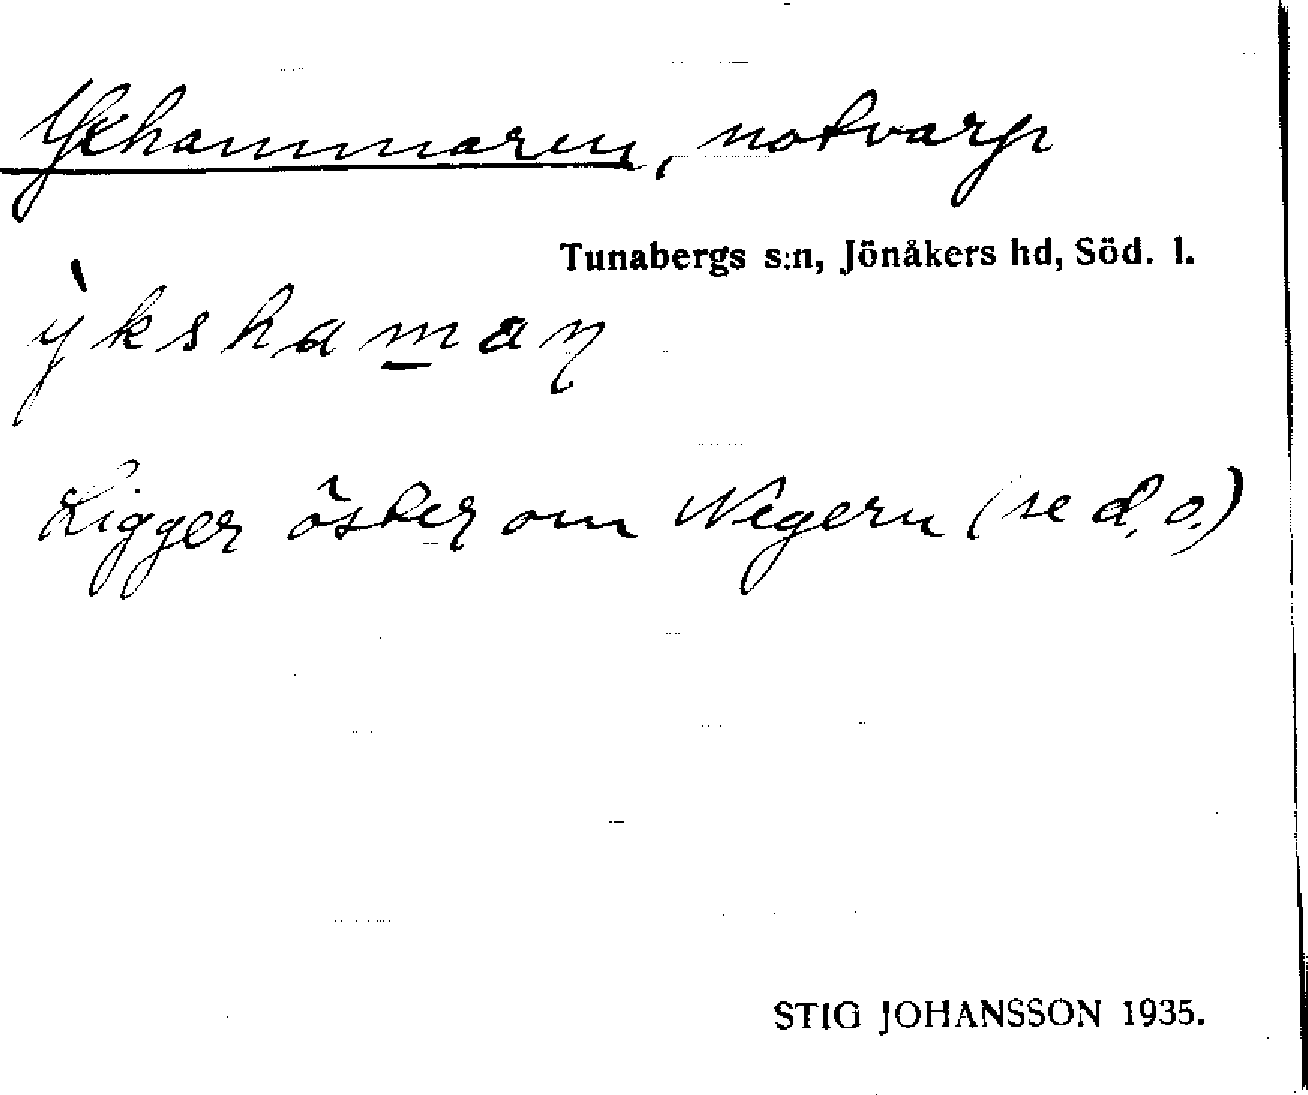 Yxhammaren, notvarp
Tunabergs s:n, Jönåkers hd, Söd. l.
ỳkshaman
Ligger öster om Vigern (se d. o.)
STIG JOHANSSON 1935.